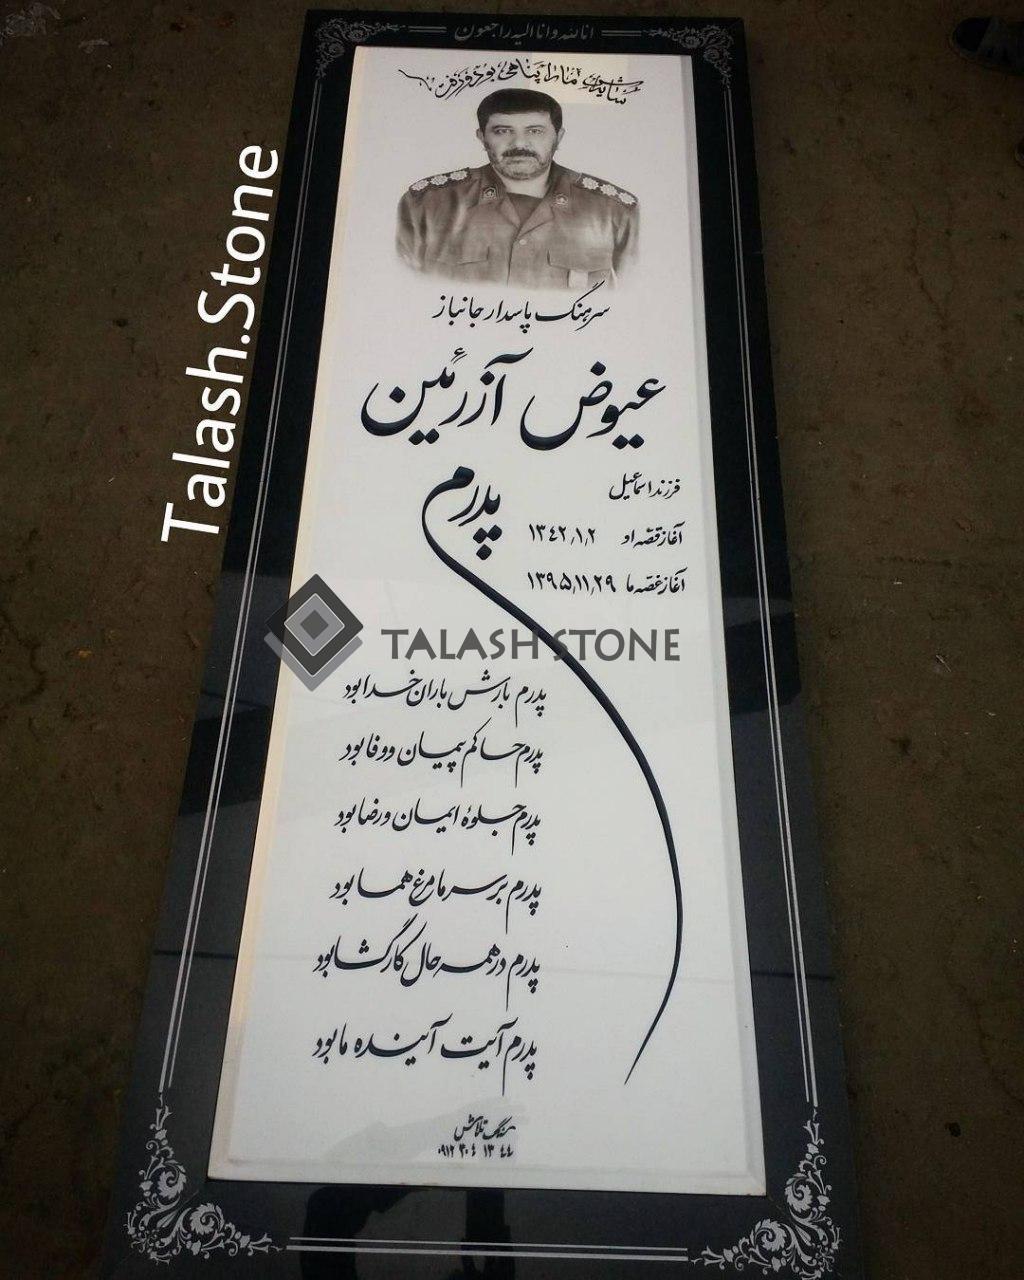 انا لله و انا الیه راجعون
سرهنگ پاسدار جانباز
عیوض آزرمین
فرزند اسماعیل
آغاز قصه او ۱۳۴۲٫۱٫۲
آغاز غصه ما ۱۳۹۵٫۱۱٫۲۹
پدرم
پدرم بارش باران خدا بود
پدرم حاکم پیمان و وفا بود
پدرم جلوهٔ ایمان و رضا بود
پدرم بر سر ما مرغ هما بود
پدرم در همه حال کارگشا بود
پدرم آیت آئینده ما بود
سنگ تلاش
۰۹۱۲ ۳۰۴ ۱۳ ۴۴
Talash.Stone
TALASH STONE